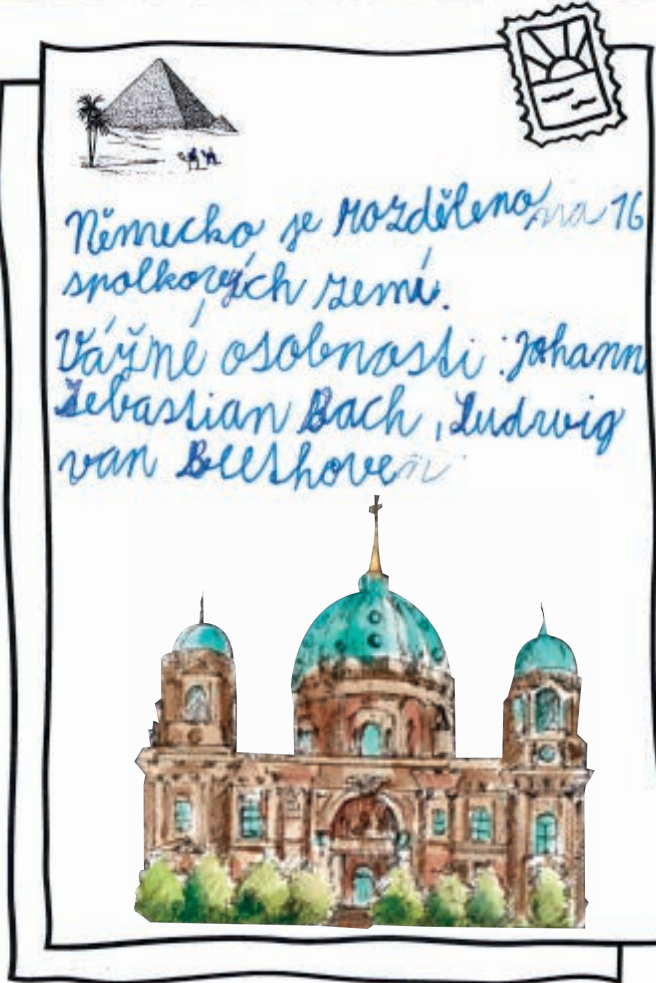 Německo je rozděleno na 16
spolkových zemí.
Vážné osobnosti : Johann
Sebastian Bach , Ludwig
van Beethoven